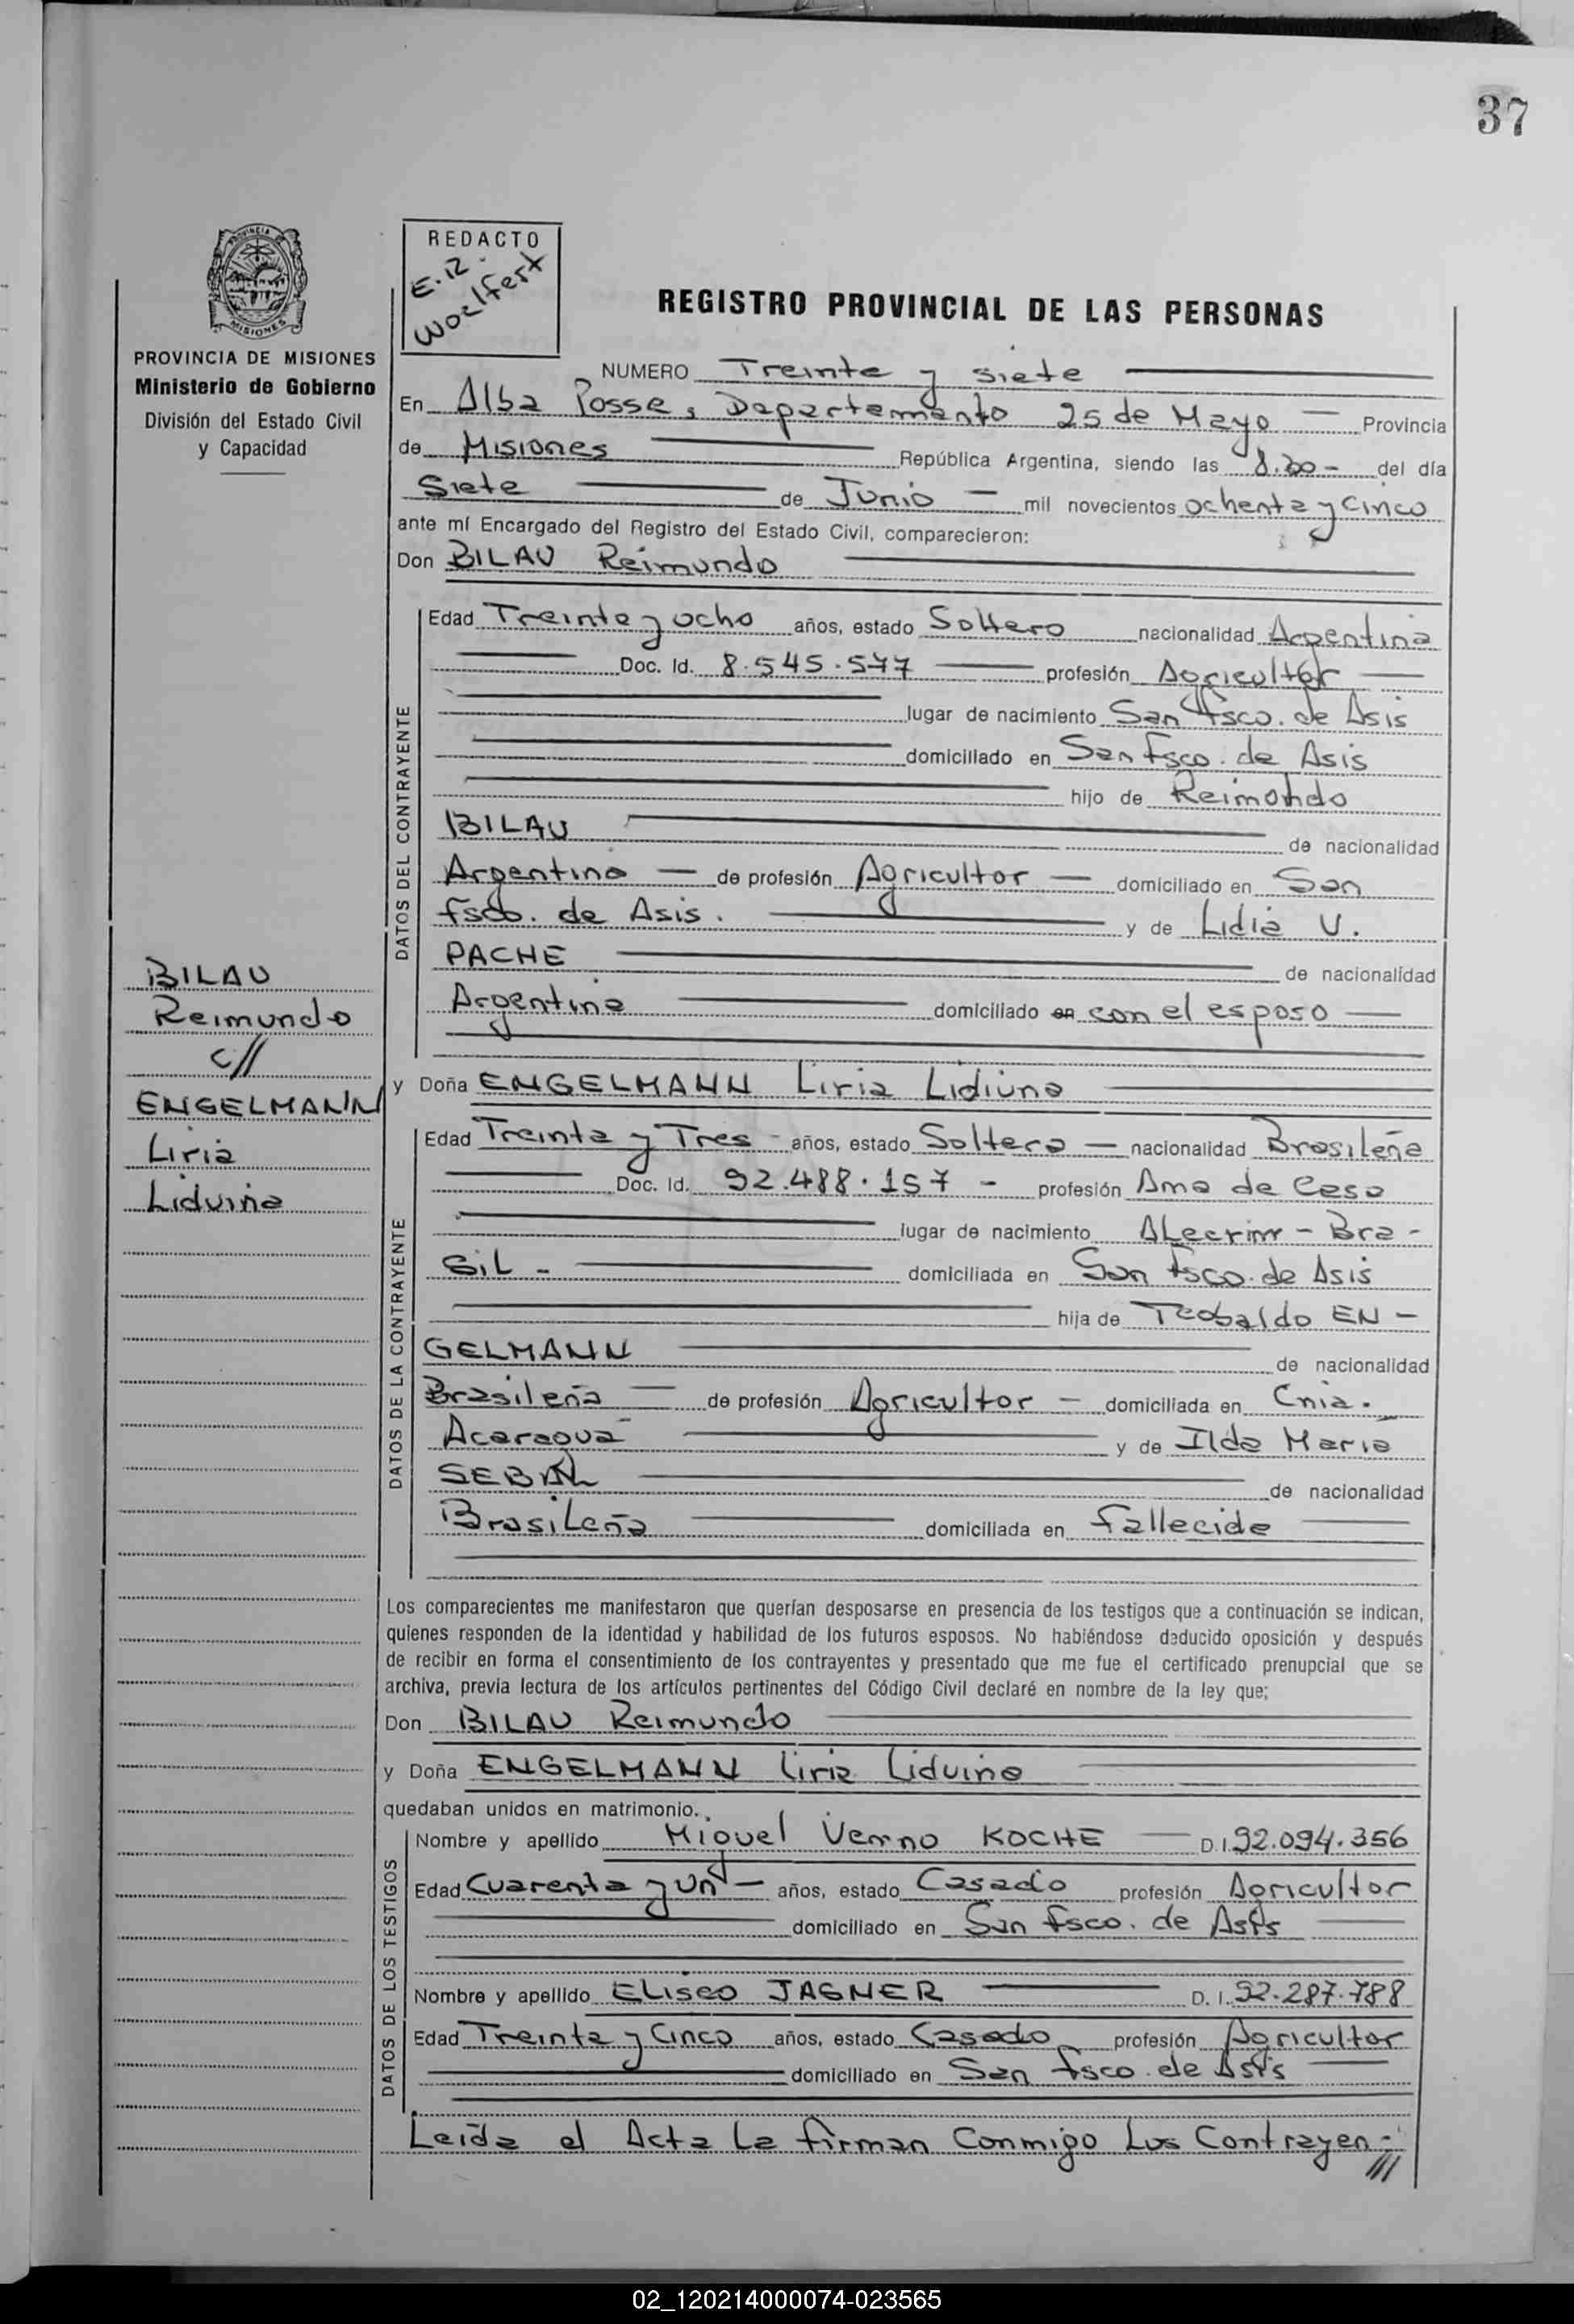 37
PROVINCIA DE
MISIONES
PROVINCIA DE MISIONES
Ministerio de Gobierno
División del Estado Civil
y Capacidad
REDACTO
E.R.
Woelfert
REGISTRO PROVINCIAL DE LAS PERSONAS
NUMERO Treinta y siete
En Alba Posse, Departamento 25 de Mayo — Provincia
de Misiones República Argentina, siendo las 8.30 - del día
Siete de Junio — mil novecientos ochenta y cinco
ante mí Encargado del Registro del Estado Civil, comparecieron:
Don BILAU Reimundo
DATOS DEL CONTRAYENTE
Edad Treinta y ocho años, estado Soltero nacionalidad Argentina
Doc. Id. 8.545.577 profesión Agricultor
lugar de nacimiento San Fsco. de Asis
domiciliado en San Fsco. de Asis
hijo de Reimondo
BILAU de nacionalidad
Argentina — de profesión Agricultor — domiciliado en San
Fsco. de Asis. y de Lidia V.
PACHE de nacionalidad
Argentina domiciliado en con el esposo
BILAU
Reimundo
c//
ENGELMANN
Liria
Liduina
y Doña ENGELMANN Liria Lidiuna
DATOS DE LA CONTRAYENTE
Edad Treinta y Tres - años, estado Soltera — nacionalidad Brasileña
Doc. Id. 92.488.157 - profesión Ama de Casa
lugar de nacimiento Alecrim - Bra-
sil - domiciliada en San Fsco. de Asis
hija de Teobaldo EN-
GELMANN de nacionalidad
Brasileña — de profesión Agricultor — domiciliada en Cnia.
Acaragua y de Ilda Maria
de nacionalidad
Brasileña domiciliada en fallecida
Los comparecientes me manifestaron que querían desposarse en presencia de los testigos que a continuación se indican,
quienes responden de la identidad y habilidad de los futuros esposos. No habiéndose deducido oposición y después
de recibir en forma el consentimiento de los contrayentes y presentado que me fue el certificado prenupcial que se
archiva, previa lectura de los artículos pertinentes del Código Civil declaré en nombre de la ley que;
Don BILAU Reimundo
y Doña ENGELMANN Liria Liduina
quedaban unidos en matrimonio.
DATOS DE LOS TESTIGOS
Nombre y apellido Miguel Verno KOCHE — D.I. 92.094.356
Edad Cuarenta y un — años, estado Casado profesión Agricultor
domiciliado en San Fsco. de Asis
Nombre y apellido Eliseo JAGNER D. I. 92.287.788
Edad Treinta y Cinco años, estado Casado profesión Agricultor
domiciliado en San Fsco. de Asis
Leida el Acta la firman Conmigo Los Contrayen-
///
02_120214000074-023565